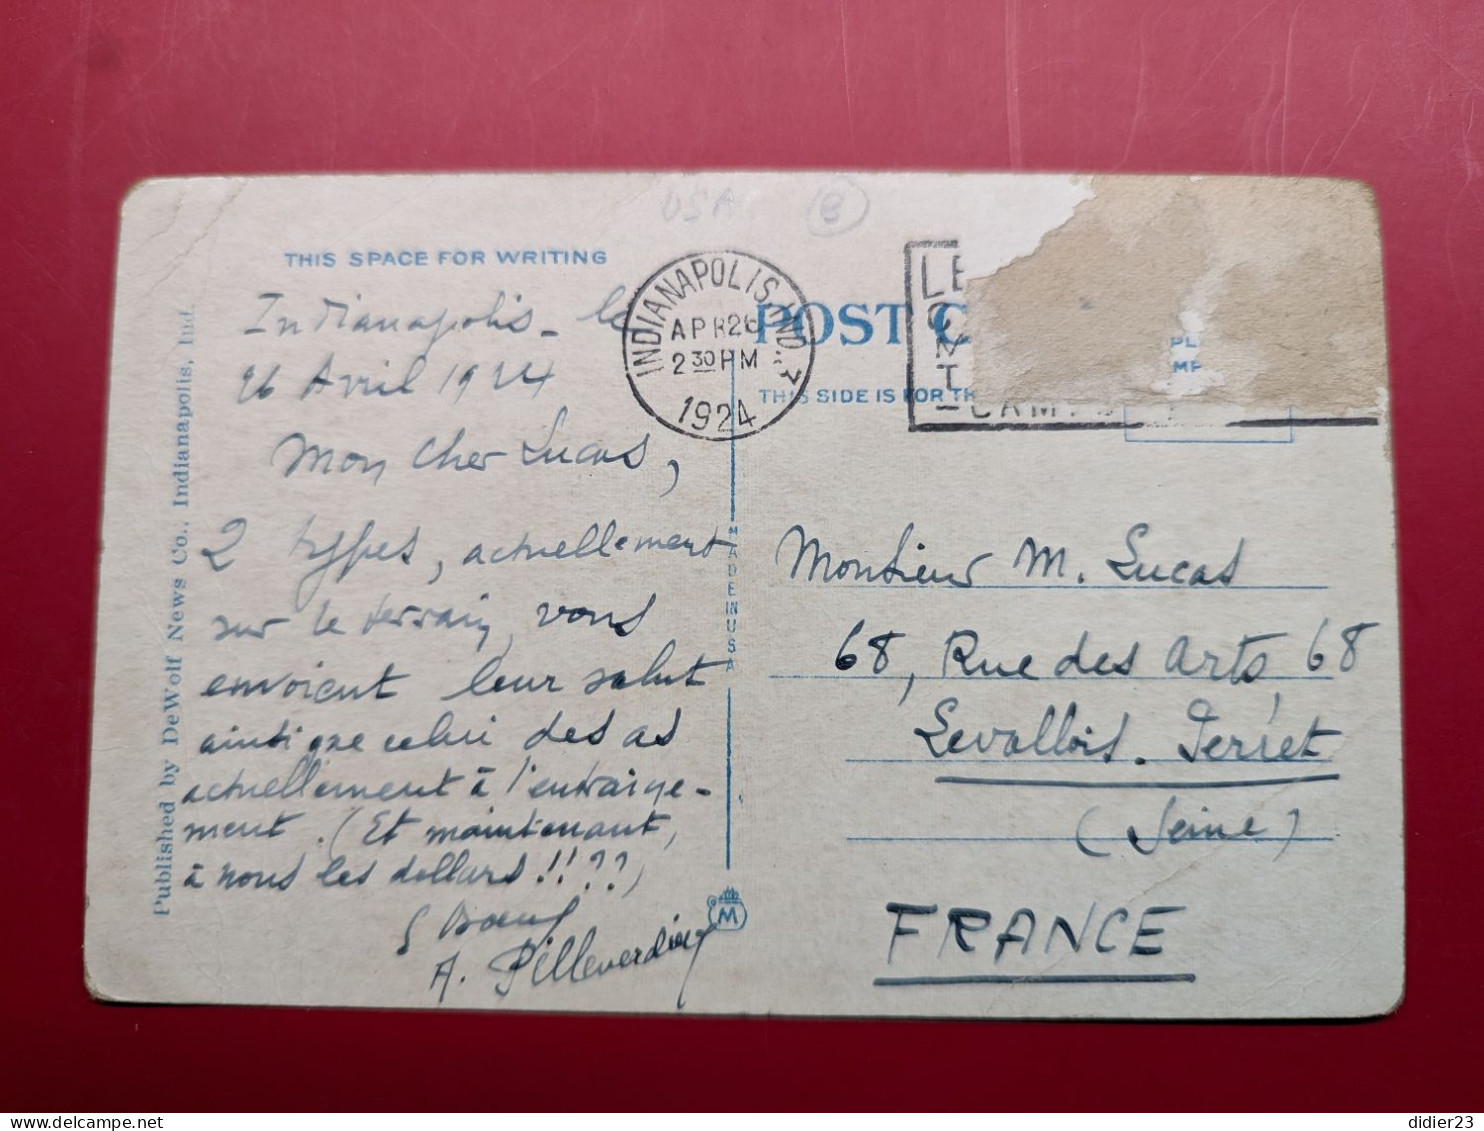 USA 8
THIS SPACE FOR WRITING
Indianapolis - le
26 Avril 1924
Mon Cher Lucas,
2 types, actuellement
sur le terrain, vous
envoient leur salut
ainsi que celui des as
actuellement à l'entraine-
ment. (Et maintenant,
à nous les dollars!!??)
A. Pilleverdier
Published by DeWolf News Co., Indianapolis, Ind.
MADE IN USA
M
INDIANAPOLIS, IND.
APR 26
2 30 PM
1924
POST C
THIS SIDE IS FOR TH
Monsieur M. Lucas
68, Rue des Arts, 68
Levallois. Perret
(Seine)
FRANCE
didier23